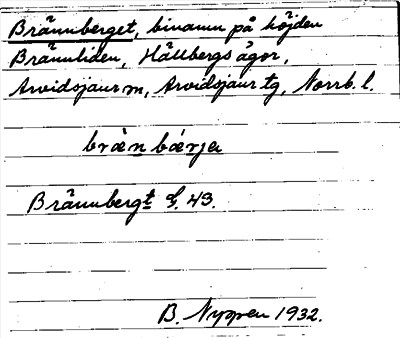 Brännberget, binamn på höjden
Brännliden, Hällbergs ägor,
Arvidsjaur sn, Arvidsjaur tg, Norrb. l.
bræ̀n bǽrja
Brännbergt
43.
B. Nyppen 1932.